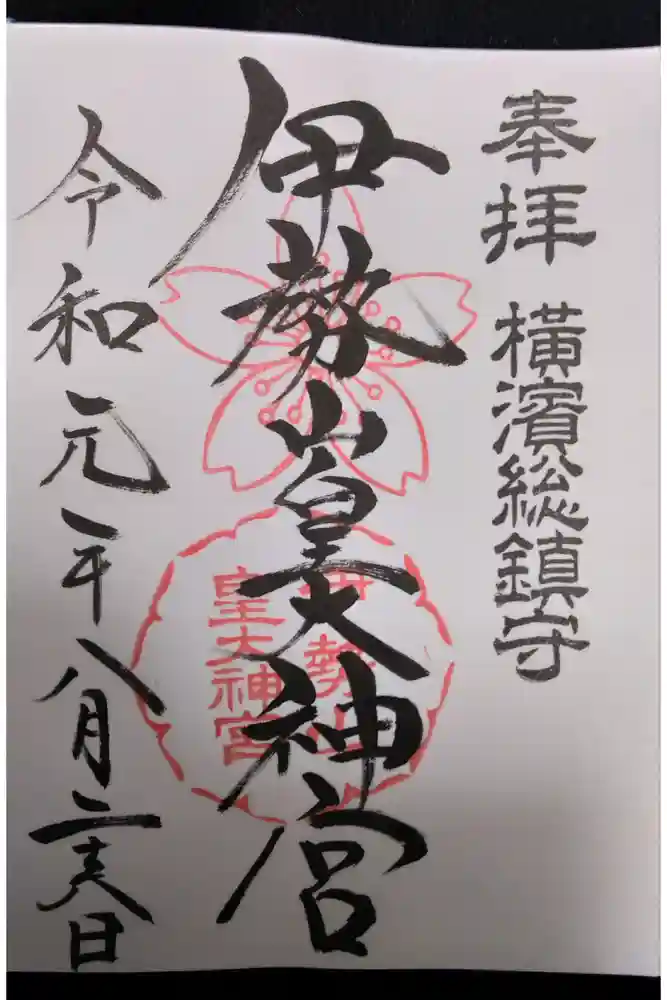 奉拝 横濱総鎮守
伊勢山皇大神宮
伊勢山
皇大神宮
令和元年八月二十六日